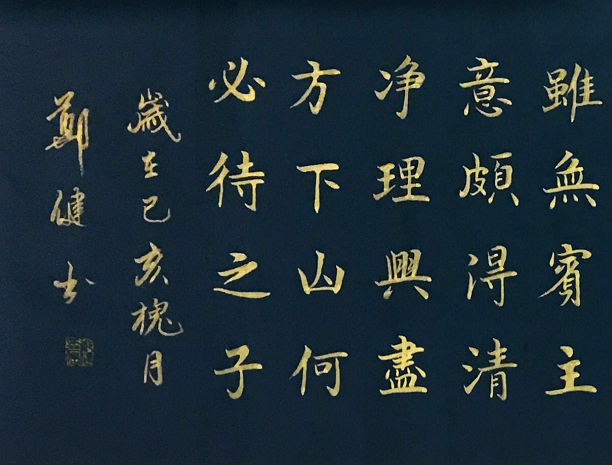 雖無賓主
意頗得清
净理興盡
方下山何
必待之子
歲在己亥槐月
鄭健书